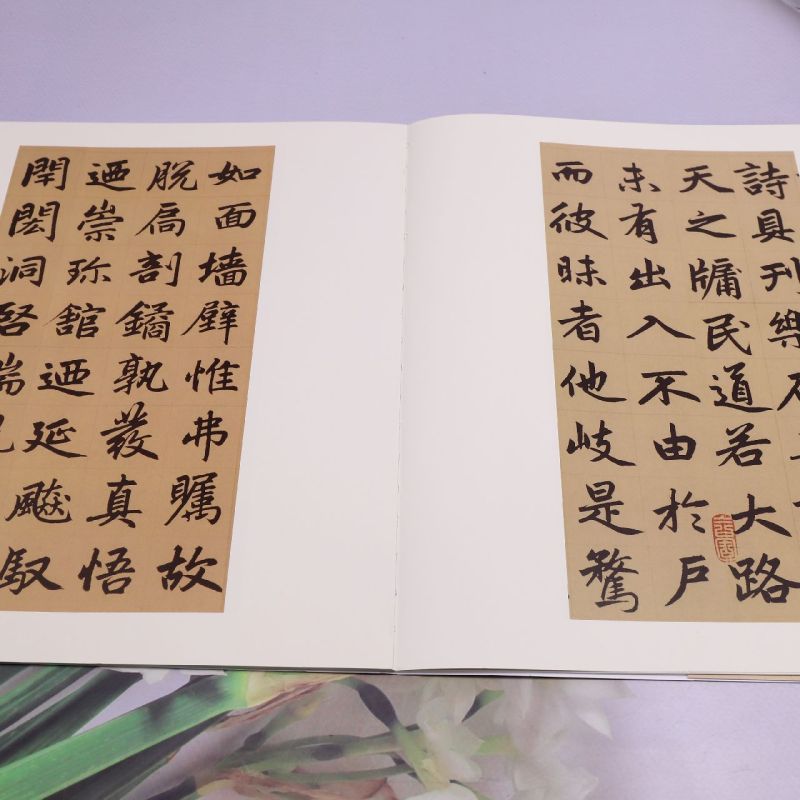 詩具刊樂
天之牖民道若大路
未有出入不由於戶
而彼昧者他岐是騖
如面墙壁惟弗矚故
脫扃剖鐍孰發真悟
迺崇珎館迺延飈馭
閈閎洞啓端